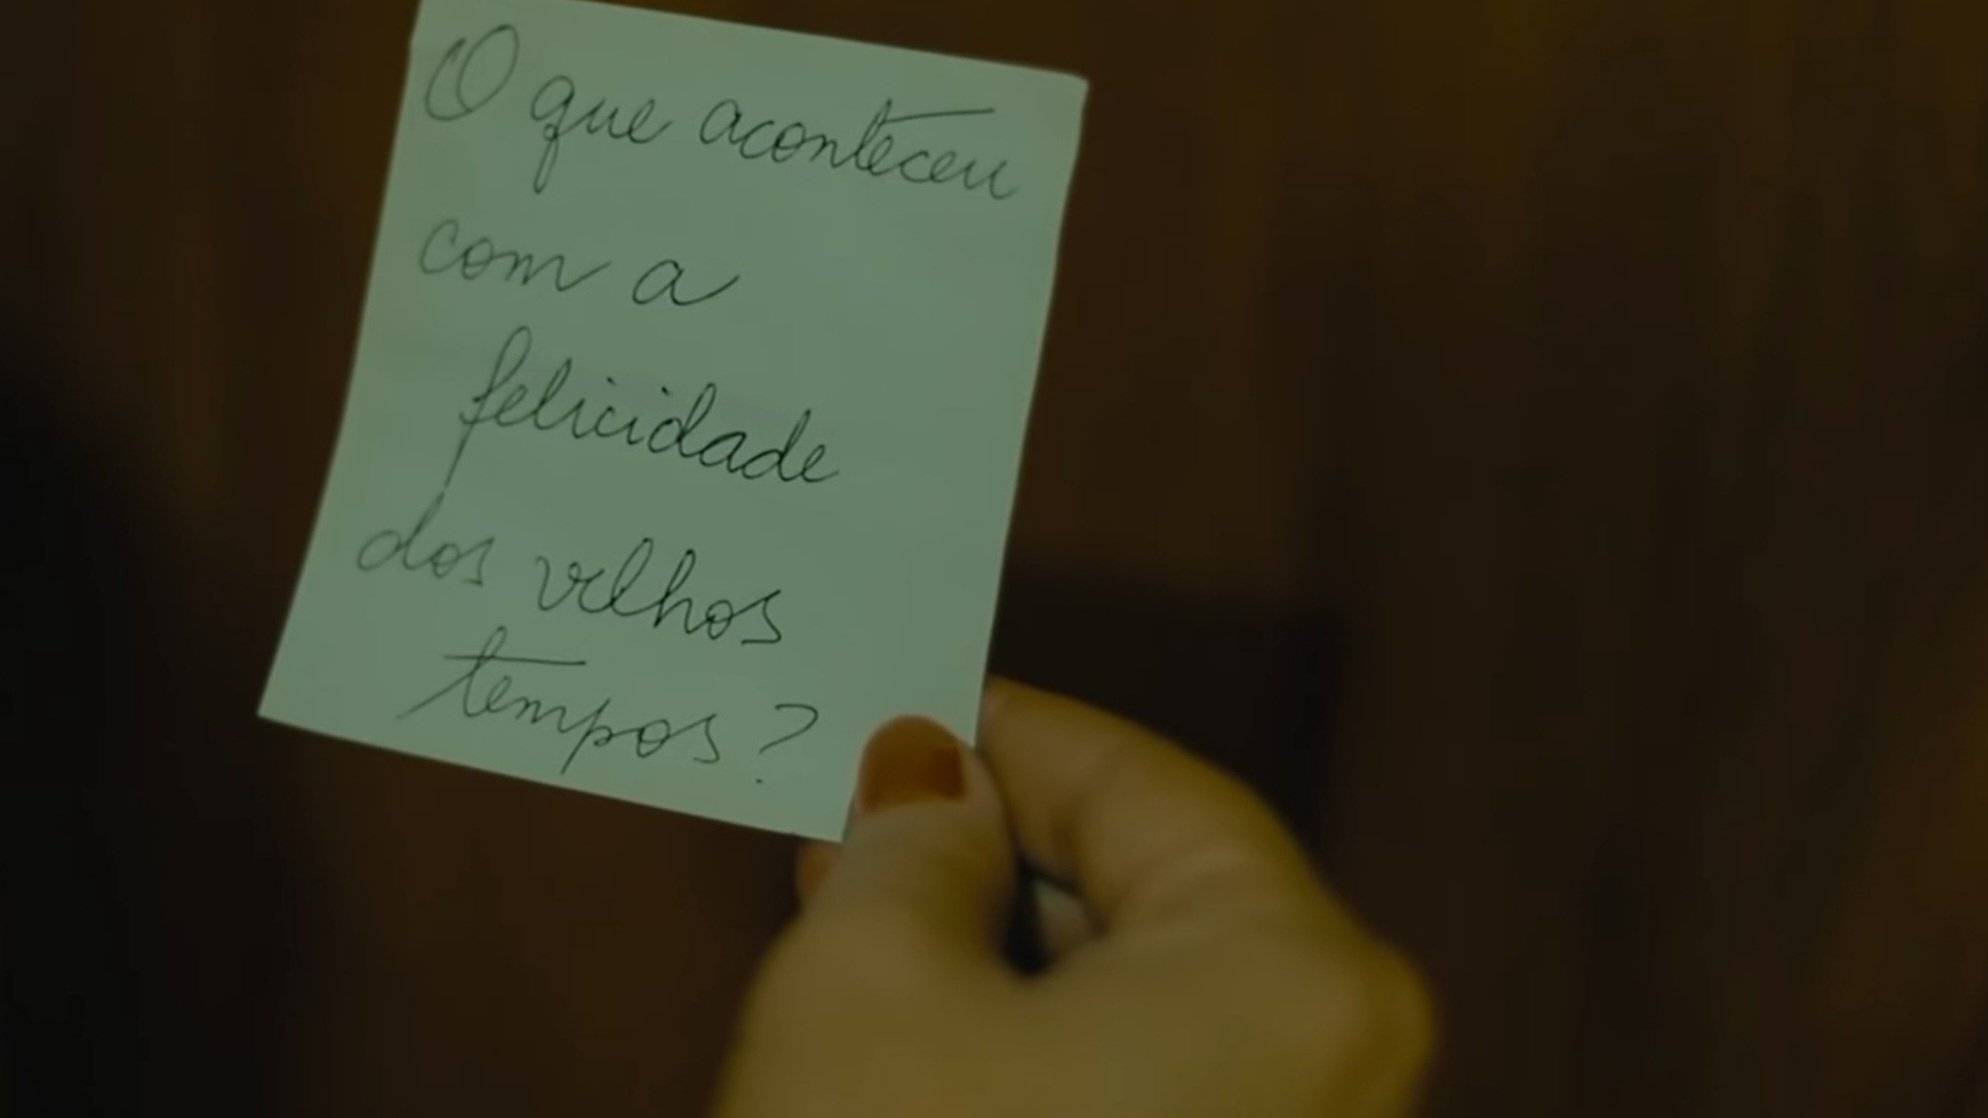 O que aconteceu
com a
felicidade
dos velhos
tempos?